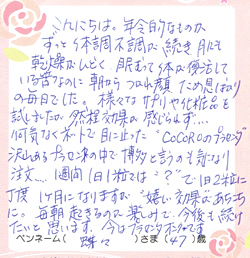 こんにちは。年令的なものか
ずっと体調不調が続き肌も
乾燥がひどく肌も体が優活して
いる筈なのに朝からつかれ顔ため息ばかり
の毎日でした。様々なサプリや化粧品を
試しましたが然程効果が感じられず…
何気なくネットで目に止った"COCOROのプラセンタ"
沢山あるプラセンタの中で博多と言うのも気になり
注文…1週間1日1粒では"?"で1日2粒に
丁度1ヶ月になりますが"嬉しい効果"があちこち
に。毎朝起きるのが楽しみで、今後も続け
たいと思います。今はプラセンタオンリーです
ペンネーム(蝶々)さま(47)歳